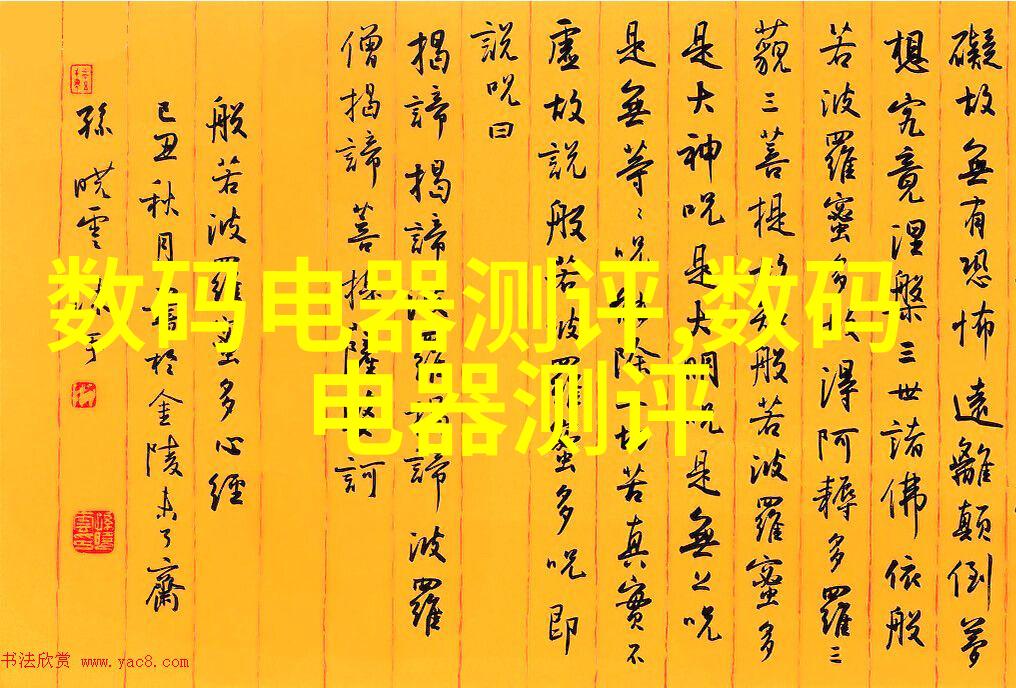 礙故無有恐怖遠離顛倒夢
想究竟涅槃三世諸佛依般
若波羅蜜多故得阿耨多羅三
藐三菩提故知般若波羅蜜多
是大神呪是大明呪是無上呪
是無等〻呪能除一切苦真實不
虛故説般若波羅蜜多呪即
説呪曰
揭諦揭諦波羅揭諦波羅
僧揭諦菩提薩婆訶
般若波羅蜜多心經
己丑秋月書於金陵未了齋
孫曉雲
数码电器测评,数码
电器测评
书法欣赏 www.yac8.com